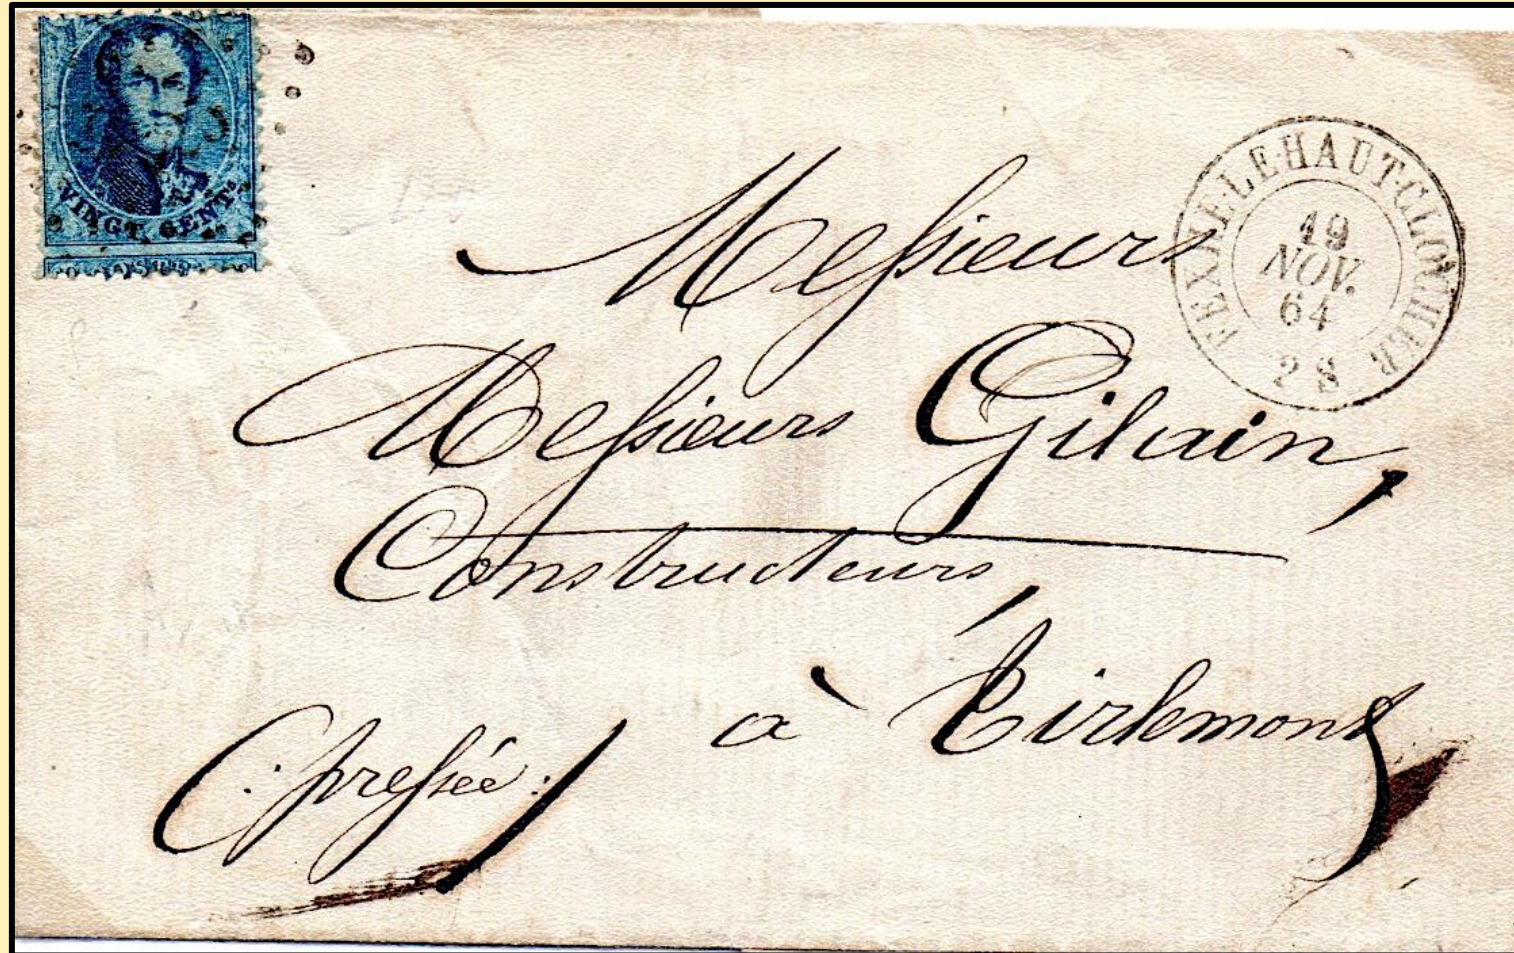 VINGT CENTS
FEXHE-LE-HAUT-CLOCHER
19
NOV.
64
2 S
Messieurs
Messieurs Gilain,
Constructeurs,
à Tirlemont
(: pressée :)